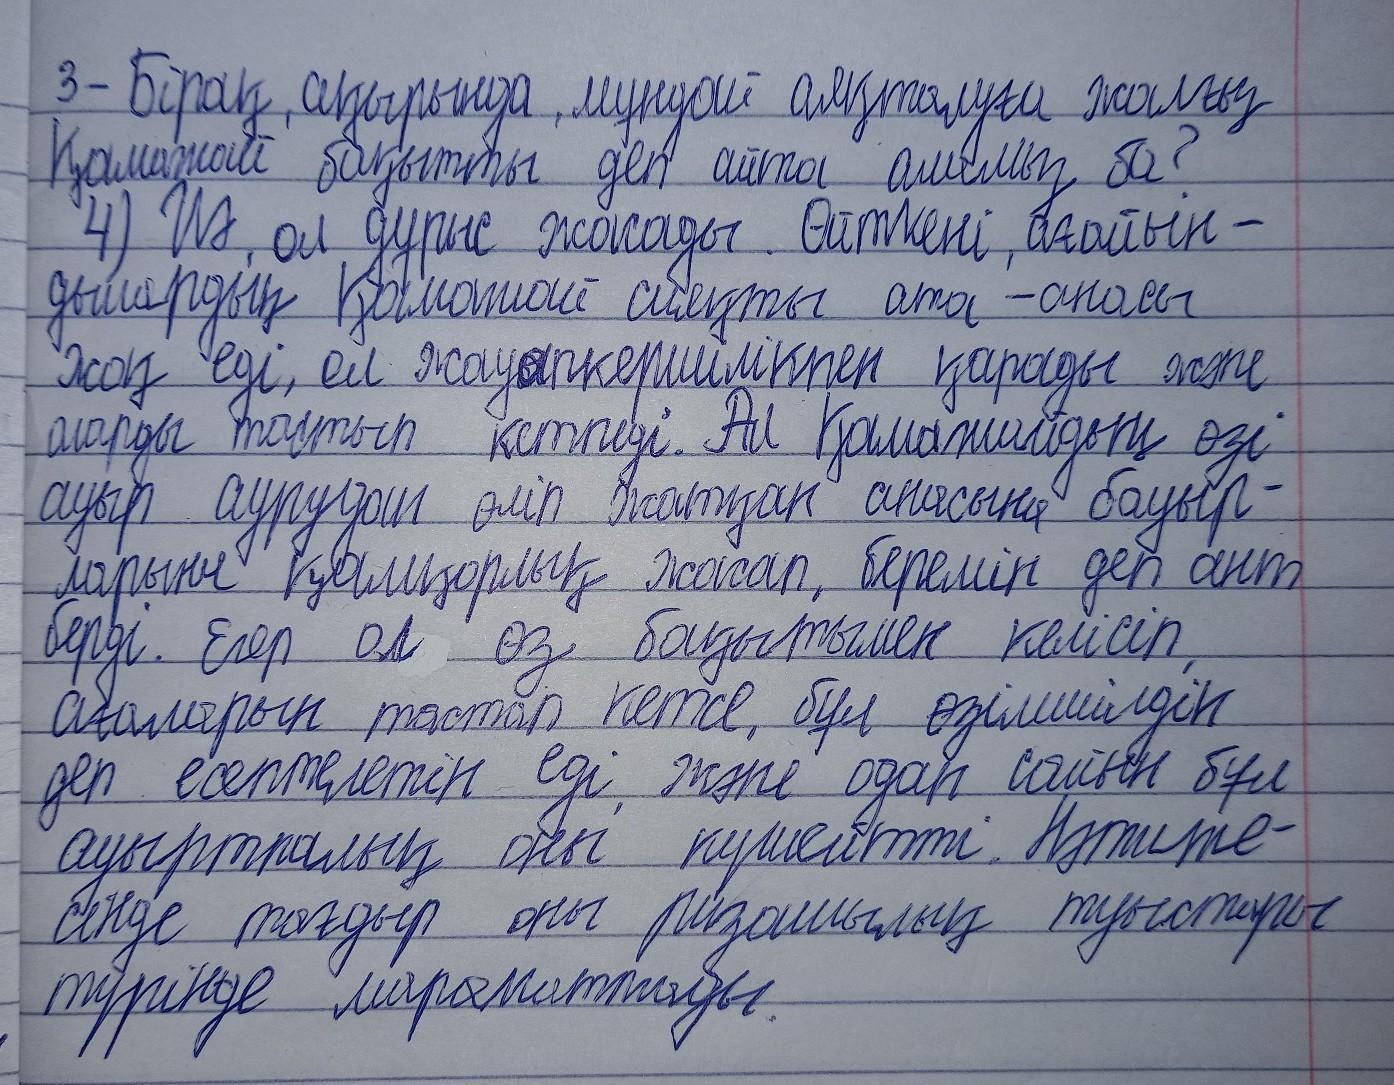 3- Бірақ, ақырында, мұндай аяқталуға жалғыз
Қамажай бақытты деп айта аламыз ба?
4) Иә, ол дұрыс жасады. Өйткені, ағайын-
дылардың Қамажай сияқты ата-анасы
жоқ еді, ол жауапкершілікпен қарады және
оларды тастып кетпеді. Ал Қамажайдың өзі
ауыр аурудан өліп жатқан анасына бауыр-
ларына қамқорлық жасап, беремін деп ант
берді. Егер ол өз бақытымен келісіп,
ағаларын тастап кетсе, бұл өзімшілдік
деп есептелетін еді, және одан сайын бұл
ауыртпалық оны күшейтті. Нәтиже-
сінде тағдыр оны ризашылық туыстары
түрінде марапаттады.